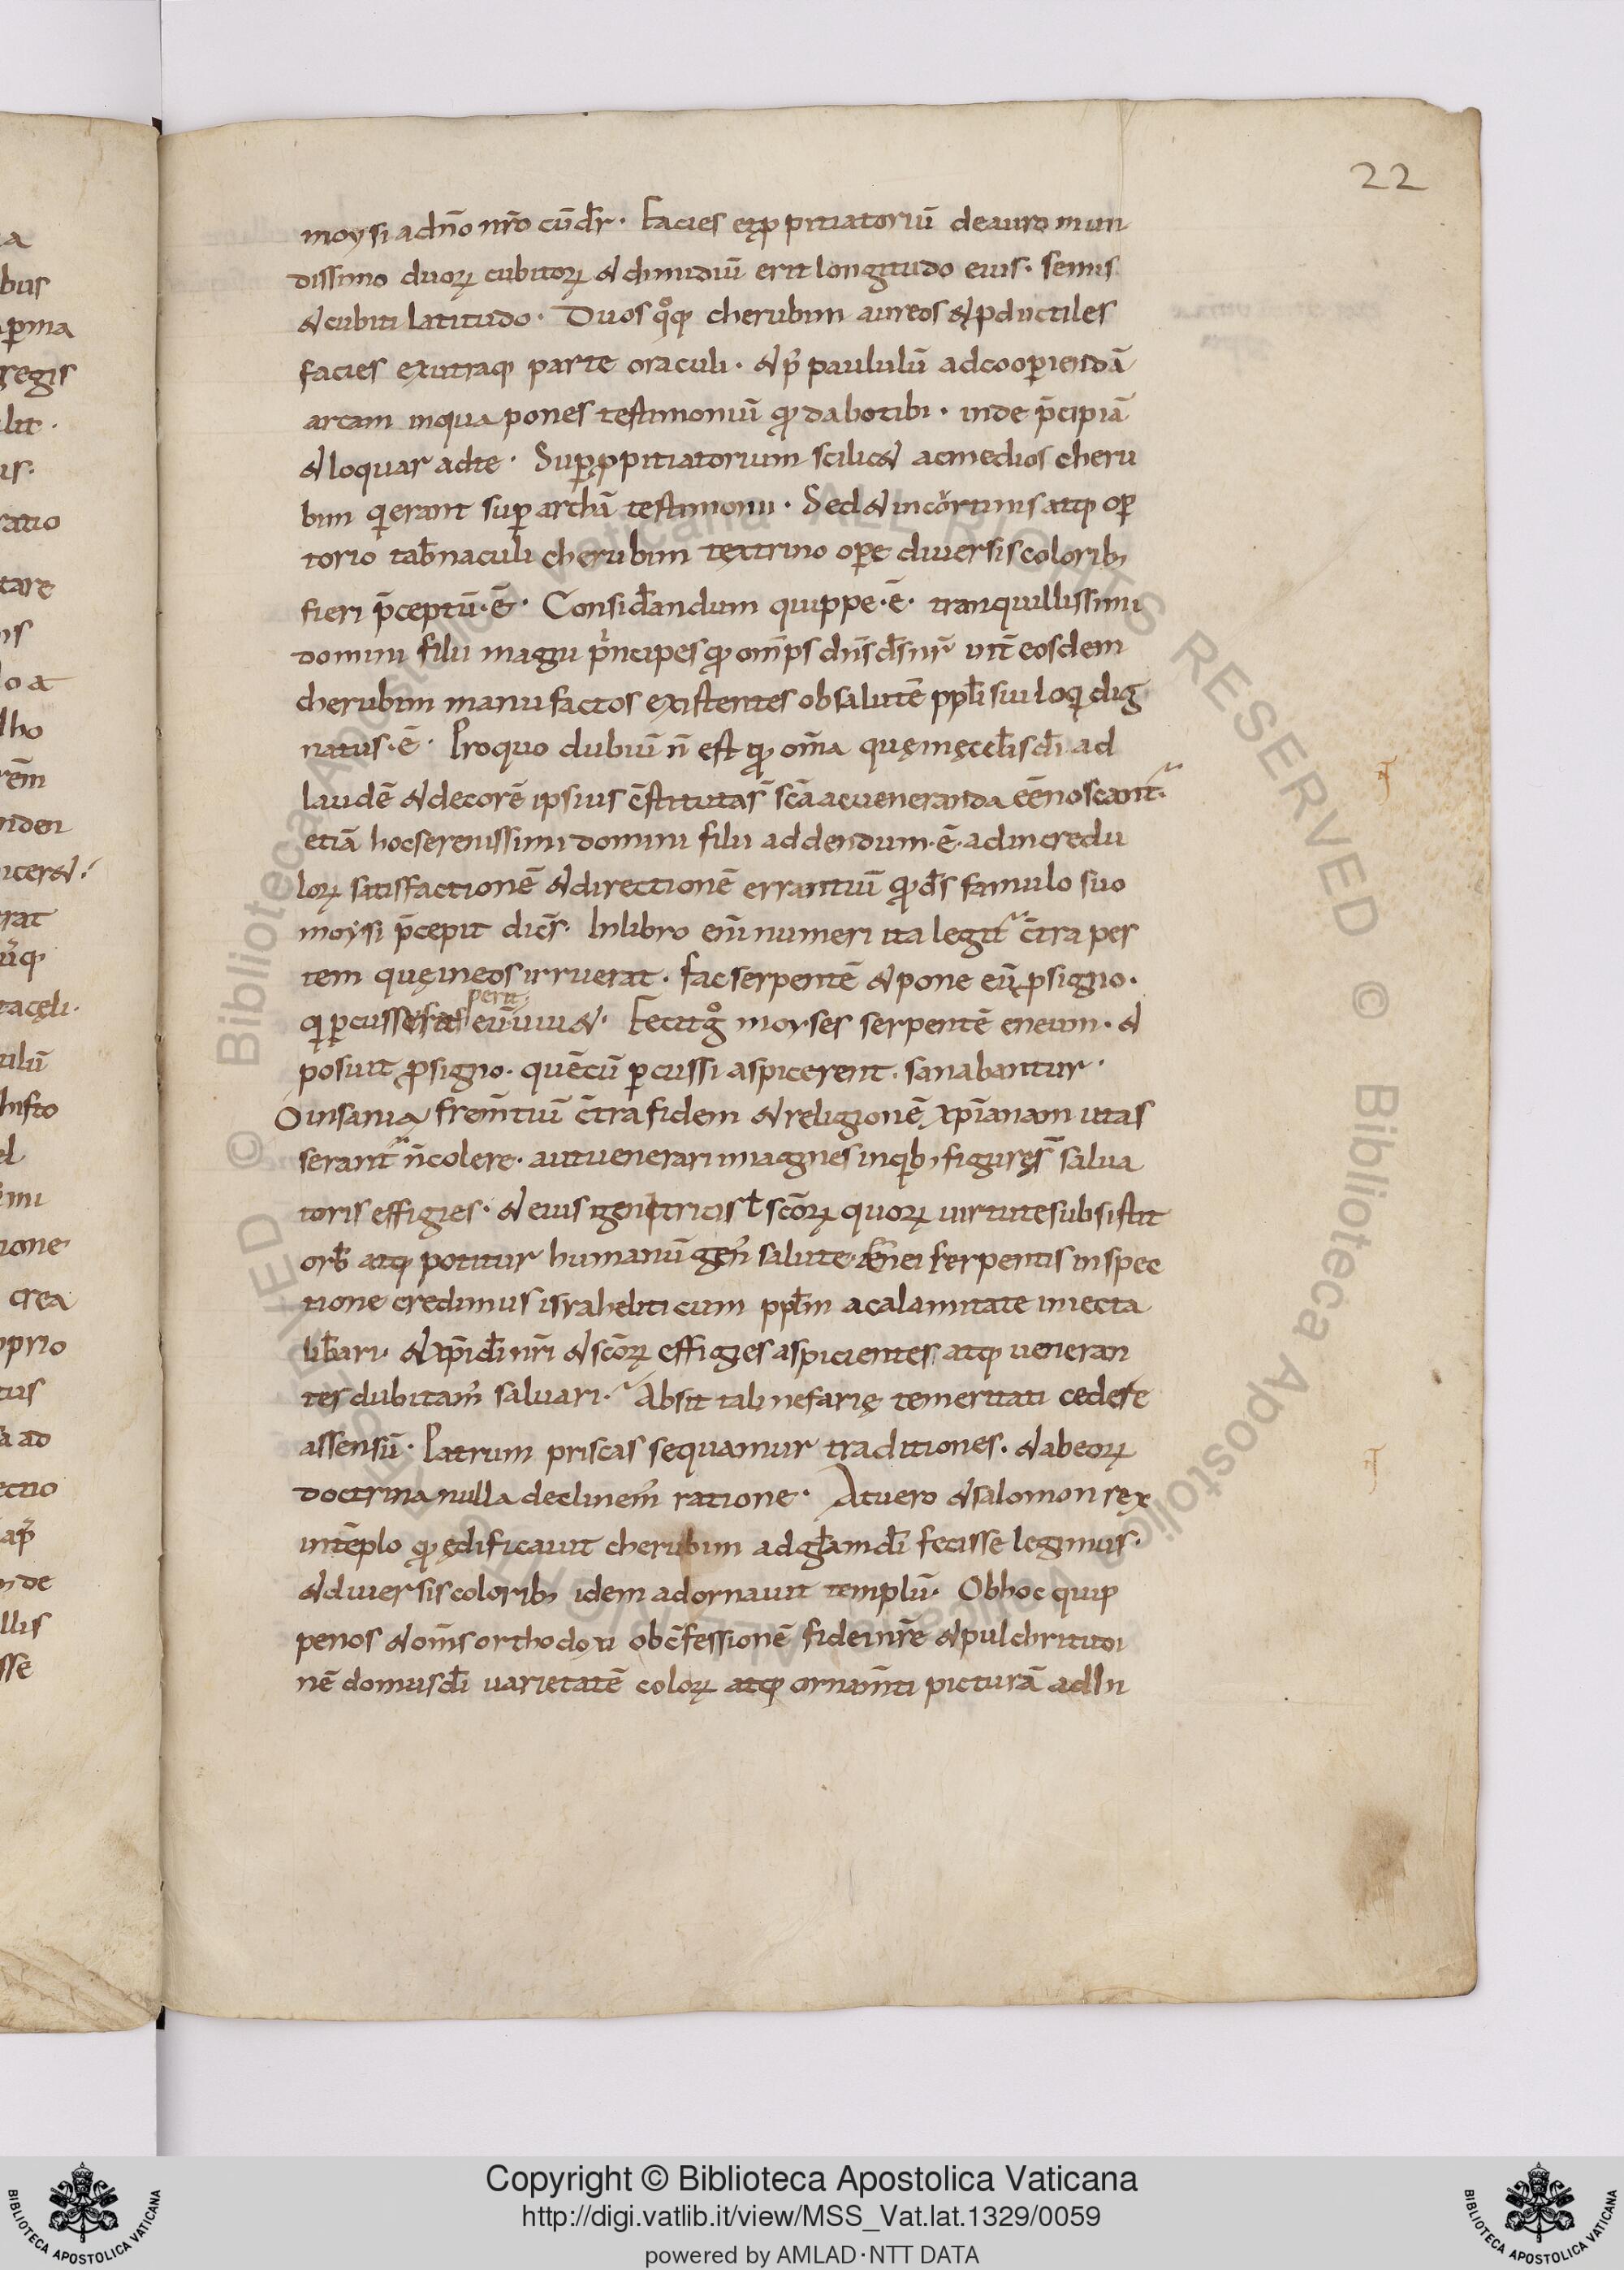 22
moysi adño nr̃o cũdr̃. Facies et ꝓpitiatoriũ deauro mun
dissimo duoꝝ cubitoꝝ & dimidiũ erit longitudo eius. semis
& cubiti latitudo. Duos qͦꝗ cherubim aureos & ꝓductiles
facies exutraq; parte oraculi. & p᷒ paululũ adcooꝑiendã
arcam inqua pones testimoniũ qđ dabotibi. inde p̃cipiã
& loquar adte. Suꝑ ꝓpitiatorium scilic& acmedios cheru
bim qierant suꝑ archã testimonii. Sed & incortinis atq; oꝑ
torio tab̃naculi cherubim textrino oꝑe diuersis colorib;
fieri p̃ceptũ.ẽ. Consid̃andum quippe.ẽ. tranquillissimi
domini filii magni p̃ncipes qđ om̃ps dñs d̃s nr̃ int̃ eosdem
cherubim manufactos existentes obsalutẽ ppl̃i sui loqi dig
natus.ẽ. Proquo dubiũ ñ est qđ om̃a quę inęccl̃is d̃i ad
laudẽ & decorẽ ipsius c̃stituta s̃ sc̃a acueneranda eẽ noscant̃.
etiã hoc serenissimi domini filii addendum.ẽ. adincredu
loꝝ satisfactionẽ & directionẽ errantiũ qđ d̃s famulo suo
moysi p̃cepit dic̃s. Inlibro eni᷒ numeri ita legit̃ c̃tra pes
tem quę ineos irruerat. fac serpentẽ & pone eũ ꝓsigno.
qi ꝑcuss asperit eũ uiu&. Fecit g̊ moyses serpentẽ eneum. &
posuit ꝓsigno. quẽcũ ꝑcussi aspicerent. sanabantur.
O insania frem̃tiũ c̃tra fidem & religionẽ xp̃ianam utas
serant̃ ñ colere. aut uenerari imagines inqib; figuręs̃ salua
toris effigies. & eius genitricis ł sc̃oꝝ quoꝝ uirtute subsistit
orb̃ atq; potitur humanũ gen᷒ salute. ænei serpentis inspec
tione credimus israheliticum ppl̃m acalamitate iniecta
lib̃ari. & xp̃i d̃i nr̃i & sc̃oꝝ effigies aspicientes atq; ueneran
tes dubitam᷒ saluari. Absit tali nefarię temeritati cedere
assensũ. Patrum priscas sequamur traditiones. & abeoꝝ
doctrina nulla declinem᷒ ratione. Atuero & salomon rex
intẽplo qđ ędificauit cherubim adgl̃am d̃i fecisse legimus.
& diuersis colorib; idem adornauit templũ. Obhoc quip
penos & om̃s orthodoxi obc̃fessionẽ fidei nr̃e & pulchritudi
nẽ domus d̃i uarietatẽ coloꝝ atq; ornam̃ti picturã adIn
Copyright © Biblioteca Apostolica Vaticana
http://digi.vatlib.it/view/MSS_Vat.lat.1329/0059
powered by AMLAD·NTT DATA
BIBLIOTECA APOSTOLICA VATICANA
BIBLIOTECA APOSTOLICA VATICANA